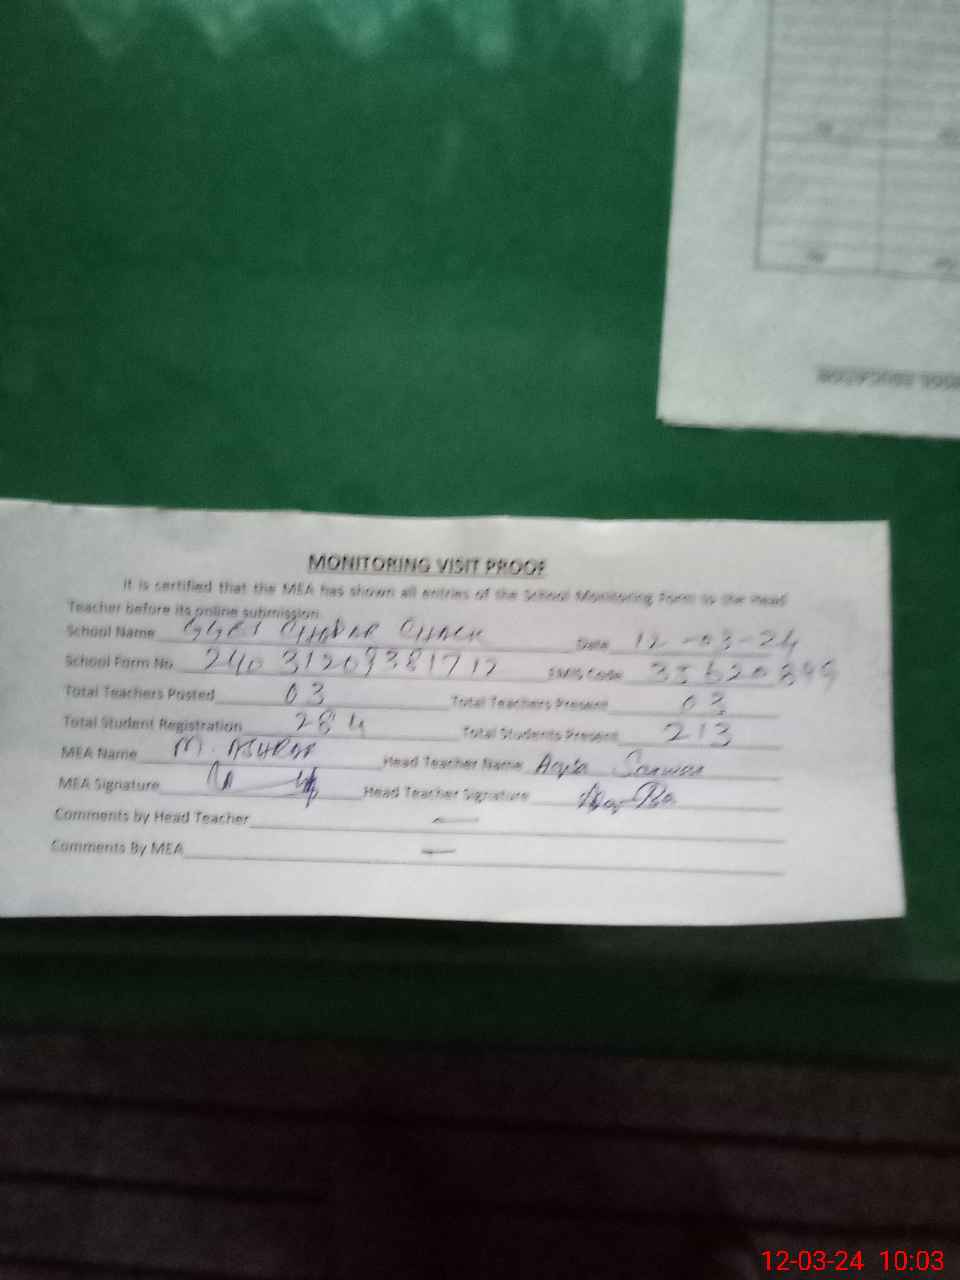 MONITORING VISIT PROOF
It is certified that the MEA has shown all entries of the School Monitoring Form to the Head
Teacher before its online submission.
School Name CHACK Date 12-03-24
School Form No. EMIS Code
Total Teachers Posted 03 Total Teachers Present 03
Total Student Registration 284 Total Students Present 213
MEA Name M. ASHRAF Head Teacher Name Aqsa Sarwar
MEA Signature Head Teacher Signature
Comments by Head Teacher —
Comments By MEA —
12-03-24 10:03